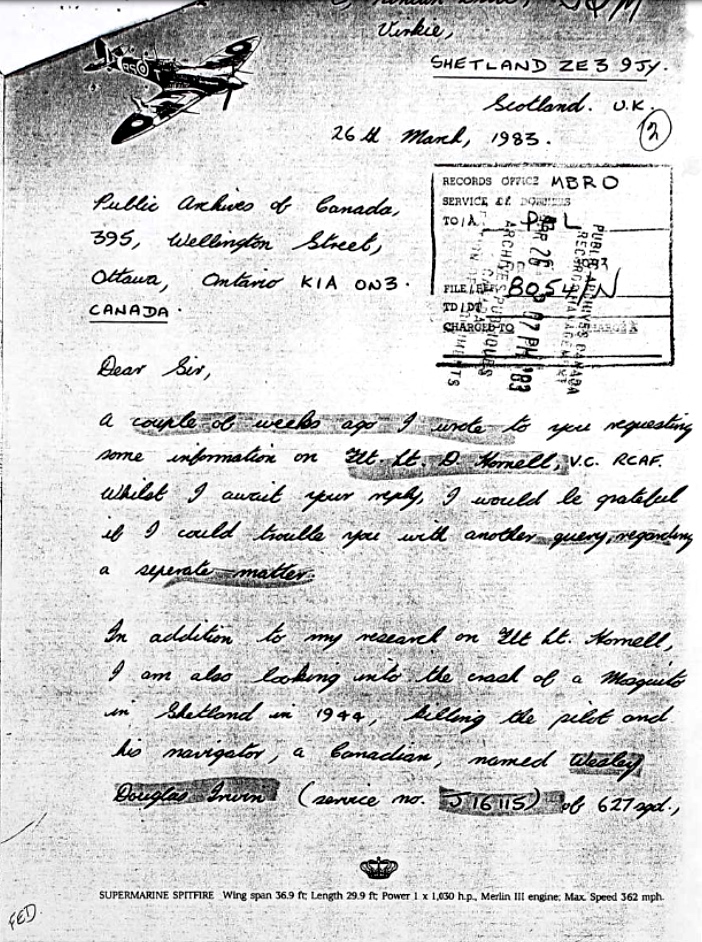 Virkie,
SHETLAND ZE3 9JY.
Scotland. U.K.
26th March, 1983.
2
Public Archives of Canada,
395, Wellington Street,
Ottawa, Ontario K1A 0N3.
CANADA.
RECORDS OFFICE MBRO
SERVICE DE DOSSIERS
TO/A
FILE/
8054/N
TD/DT
CHARGED TO
PUBLIC ARCHIVES CANADA
RECORDS MANAGEMENT
ARCHIVES PUBLIQUES
Dear Sir,
A couple of weeks ago I wrote to you requesting
some information on Flt. Lt. D Hornell, V.C. RCAF.
Whilst I await your reply, I would be grateful
if I could trouble you with another query, regarding
a seperate matter.
In addition to my research on Flt Lt. Hornell,
I am also looking into the crash of a Mosquito
in Shetland in 1944, killing the pilot and
his navigator, a Canadian, named Wesley
Douglas Irwin (service no. J16115) of 627 sqd.,
SUPERMARINE SPITFIRE Wing span 36.9 ft; Length 29.9 ft; Power 1 x 1,030 h.p., Merlin III engine; Max. Speed 362 mph.